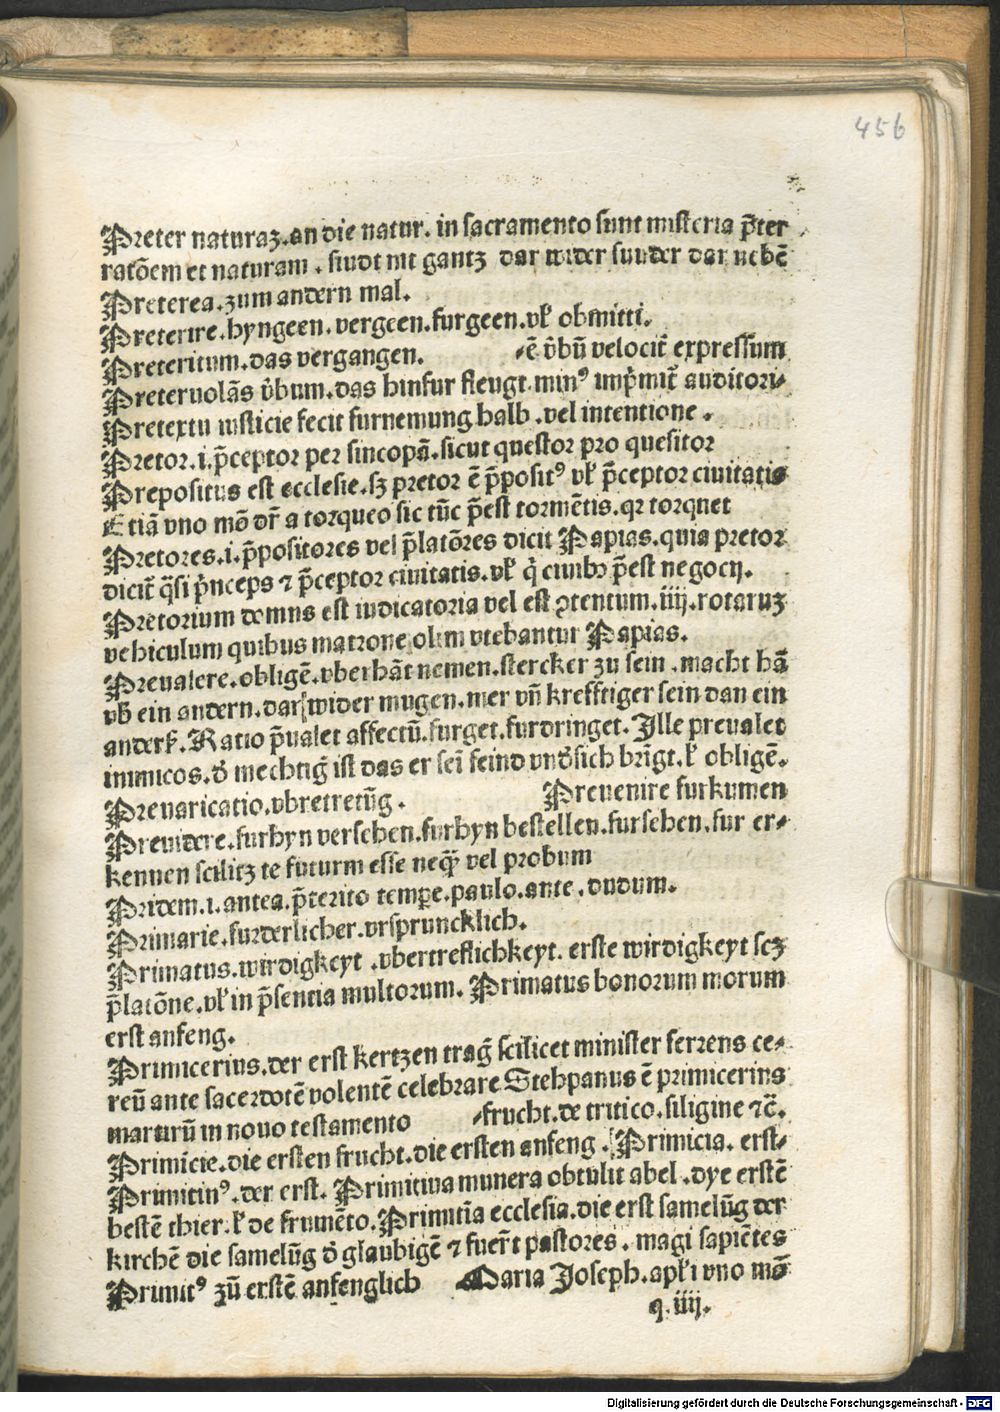 456
Preter naturaꝫ.an die natur. in sacramento sunt misteria p̄ter
ratōem et naturam. sindt nit gantz dar wider sunder dar nebē
Preterea.zum andern mal.
Preterire.hyngeen.vergeen.furgeen.vł obmitti.
Preteritum.das vergangen. -ē v̄bū velocit̄ expressum
Preteruolās v̄bum.das hinfur fleugt.min⁹ imp̄mit̄ auditori-
Pretextu iusticie fecit furnemung halb.vel intentione.
Pretor.i.p̄ceptor per sincopā.sicut questor pro quesitor
Prepositus est ecclesie.sꝫ pretor ē p̄posit⁹ vł p̄ceptor ciuitatis
Etiā vno mō dr̄ a torqueo sic tūc p̄est tormētis.qꝛ torquet
Pretores.i.p̄positores vel p̄latōres dicit Papias.quia pretor
dicit̄ q̄si p̄nceps ⁊ p̄ceptor ciuitatis.vł q̇ cuibꝫ p̄est negocij.
Pretorium domus est iudicatoria vel est ꝯtentum.iiij.rotaruꝫ
vehiculum quibus matrone olim vtebantur Papias.
Preualere.obligē.vberhāt nemen.stercker zu sein.macht hā
vb̄ ein andern.dar wider mugen.mer vn̄ krefftiger sein dan ein
anderł.Ratio p̄ualet affectū.furget.furdringet.Ille preualet
inimicos.d̄ mechtiḡ ist das er sei̅ feind vnd̄sich bri̅gt.ł obligē.
Preuaricatio.vbretretūg. Preuenire furkumen
Preuidere.furhyn versehen.furhyn bestellen.fursehen.fur er-
kennen scilitꝫ te futurm esse neqꝫ̄ vel probum
Pridem.i.antea.p̄terito tempꝑe.paulo.ante.dudum.
Primarie.furderlicher.vrspruncklich.
Primatus.wirdigkeyt.vbertreflichkeyt. erste wirdigkeyt scꝫ
p̄latōne.vł in p̄sentia multorum. Primatus bonorum morum
erst anfeng.
Primicerius.der erst kertzen traḡ scilicet minister ferrens ce-
reū ante sacerdotē volentē celebrare Stehpanus ē primicerius
martirū in nouo testamento -frucht.de tritico.siligine ⁊c̄.
Primicie.die ersten frucht.die ersten anfeng. Primicia. erst-
Primitiu⁹.der erst. Primitiua munera obtulit abel.dye erstē
bestē thier.ł de frumēto.Primitīa ecclesia.die erst samelūg der
kirchē die samelūg d̄ glaubigē ⁊ fuer̄t pastores. magi sapiētes
Primit⁹ zū erstē anfenglich Maria Joseph.apłi vno mō
q.iiij.
Digitalisierung gefördert durch die Deutsche Forschungsgemeinschaft - DFG